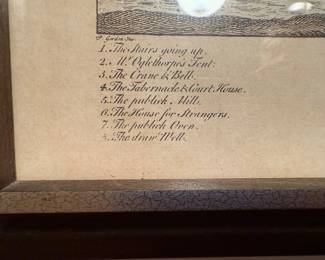 P. Gordon Inv.
1. The Stairs going up.
2. Mr. Oglethorpe's Tent.
3. The Crane & Bell.
4. The Tabernacle & Court House.
5. The publick Mill.
6. The House for Strangers.
7. The publick Oven.
8. The draw Well.